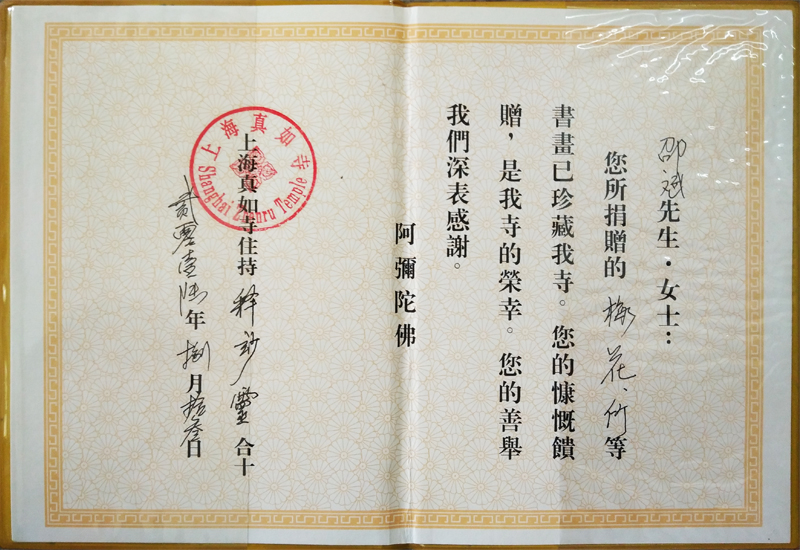 邵斌先生·女士：
您所捐贈的梅花、竹等
書畫已珍藏我寺。您的慷慨饋
贈，是我寺的榮幸。您的善舉
我們深表感謝。
阿彌陀佛
上海真如寺住持 释妙靈 合十
贰零壹陆年捌月拾叁日
上海真如寺
Shanghai Zhenru Temple